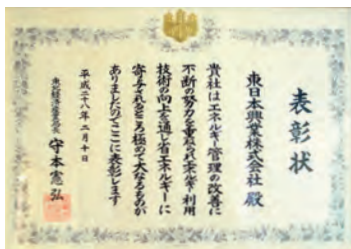 表彰状
東日本興業株式会社 殿
貴社はエネルギー管理の改善に
不断の努力を重ねられエネルギー利用
技術の向上を通し省エネルギーに
寄与されるところ極めて大なるものが
ありましたのでここに表彰します
平成二十八年二月十日
東北経済産業局長 守本憲弘